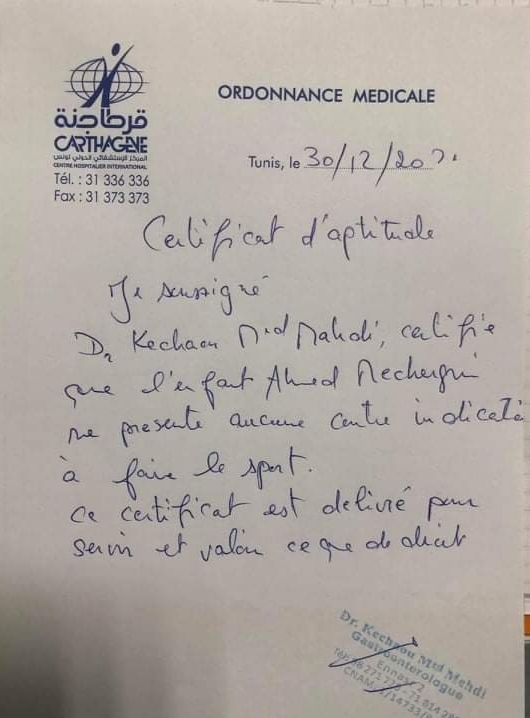 قرطاجنة
CARTHAGENE
المركز الإستشفائي الدولي تونس
CENTRE HOSPITALIER INTERNATIONAL
Tél. : 31 336 336
Fax : 31 373 373
ORDONNANCE MEDICALE
Tunis, le 30/12/202
Certificat d'aptitude
Je soussigné
Dr Kechaou Med Mahdi, certifie
que l'enfant Ahmed Mechergui
ne presente aucune contre indicatio
à faire le sport.
ce certificat est délivré pour
servir et valoir ce que de droit
Dr. Kechaou Med Mehdi
Gastroenterologue
Ennasr 2
CNAM